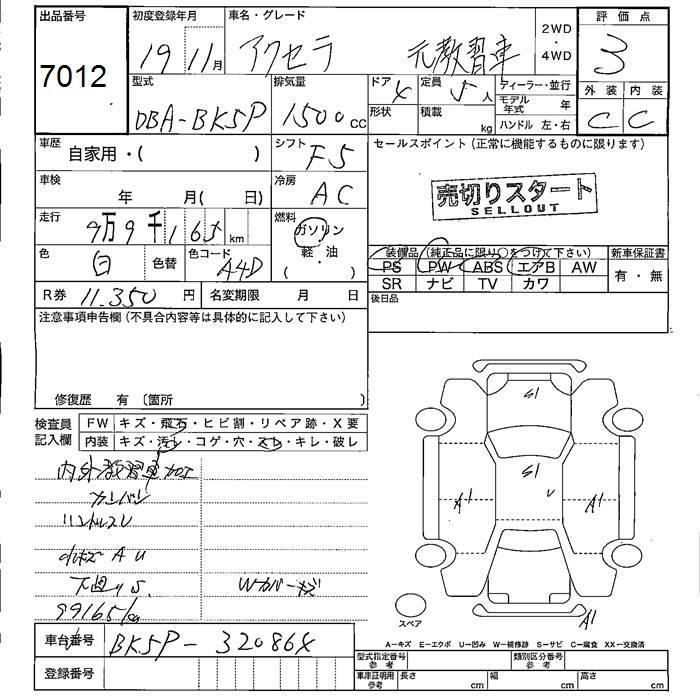 出品番号 初度登録年月 車名・グレード 評価点
7012 19年11月 アクセラ 元教習車 2WD・4WD 3
型式 排気量 ドア 定員 ディーラー・並行 外装 内装
DBA-BK5P 1500cc 4 5人 モデル年式 年 C C
形状 積載 kg ハンドル 左・右
車歴 シフト セールスポイント(正常に機能するものに限ります)
自家用・( ) F5
車検 冷房
年 月( 日) AC 売切りスタート
SELLOUT
走行 燃料
9万9千165km ガソリン・軽油( )
装備品(純正品に限り○をつけて下さい) 新車保証書
色 色替 色コード PS PW ABS エアB AW 有・無
白 A4D SR ナビ TV カワ
R券 11.350円 名変期限 月 日 後日品
注意事項申告欄(不具合内容等は具体的に記入して下さい)
修復歴 有 〔箇所 〕
検査員記入欄 FW キズ・飛石・ヒビ割・リペア跡・X要
内装 キズ・汚レ・コゲ・穴・スレ・キレ・破レ
内外教習車加工
ハンドルスU
小キズAU
下廻りS Wカバーキズ
99165km
S1
S1
U
A1 A1
A1
スペア
A-キズ E-エクボ U-凹み W-補修跡 S-サビ C-腐食 XX-交換済
車台番号 BK5P-320864
登録番号
型式指定番号参考 類別区分番号参考
車庫証明用参考 長さ cm 幅 cm 高さ cm